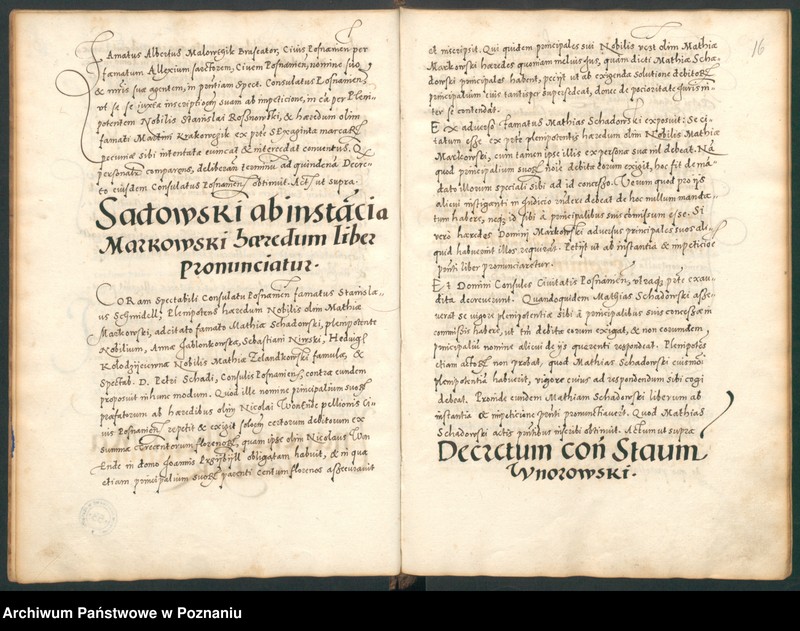 Famatus Albertus Malowczik Braseator, Civis Posnanien per
famatum Allexium sartorem, Civem Posnanien, nomine suo,
& uxoris suæ agentem, in pñtiam Spect. Consulatus Posnanien,
ut sa se juxta inscriptionem suam ab impeticione, in ea per Plem-
potentem Nobilis Stanislai Rosznowski, & hæredum olim
famati Martini Krakowczik ex pte Sexaginta marcar
pecuniæ sibi intentata evincat & intercedat conventus. Q
personalr comparens, deliberan terminu ad quindena Decre-
to eiusdem Consulatus Posnanien obtinuit. Act, ut supra.
Sadowski ab instãcia
Markowski hæredum liber
pronunciatur.
CORam Spectabili Consulatu Posnanien famatus Stanisla-
us Schmidell, Plempotens hæredum Nobilis olim Mathiæ
Markowski, adcitato famato Mathia Schadowski, plempotente
Nobilium, Annæ Jablonkowska, Sebastiani Niniski, Hedvigis
Kolodzijewnæ Nobilis Mathiæ Zelandkowski famulæ, &
Spectab. D. Petri Schadi, Consulis Posnaniens, contra eundem
proposuit in hunc modum. Quod ille nomine principalium suor
præfatorum ab hæredibus olim Nicolai Won Ende pellionis Ci-
vis Posnanien repetit & exigit solucem certorum debitorum ex
summa Trecentorum florenor, quam ipse olim Nicolaus Won
Ende in domo Joannis obligatam habuit, & in qua
etiam principalium suor parenti Centum florenos assecuravit
16
et inscripsit. Qui quidem principales sui Nobilis vest olim Mathiæ
Markowski hæredes quoniam melius jus, quam dicti Mathiæ Scha-
dowski principales habent, pecijt ut ab exigenda solutione debitor
principalium eius tantisper supersedeat, donec de pocioritate juris in-
ter se contendat.
Ex adverso famatus Mathias Schadowski exposuit: Se ci-
tatum esse ex pte plempotentis hæredum olim Nobilis Mathiæ
Markowski, cum tamen ipse illis ex persona sua nil debeat. Na
quod principalium suor noie debita eorum exigit, hoc fit de mã-
dato illorum speciali sibi ad id concesso. Verum quod pro ijs
alicui instiganti in judicio videre debeat de hoc nullum manda-
tum habere, neq id sibi à principalibus suis comissum esse. Si
vero hæredes Domini Markowski adversus principales suos ali-
quid habuerint illos requirãt. Petijt ut ab instantia & impeticione
pñti liber pronunciaretur.
Et Domini Consules Civitatis Posnanien, utraq pte exau-
dita decreverunt. Quandoquidem Mathias Schadowski asse-
verat se vigore plempotentiæ sibi à principalibus suis concessæ in
commissis habere, ut tm debita eorum exigat, & non eorumdem,
principaliu nomine alicui de ijs quærenti respondeat. Plempotes
etiam actor non probat, quod Mathias Schadowski eiusmoi
plempotentia habuerit, vigore cuius ad respondendum sibi cogi
debeat. Proinde eundem Mathiam Schadowski liberum ab
instantia & impeticione pñti pronunciaverit. Quod Mathias
Schadowski actis pñtibus inscribi obtinuit. Actum ut supra.
Decretum coñ Staum
Wnorowski.
Archiwum Państwowe w Poznaniu